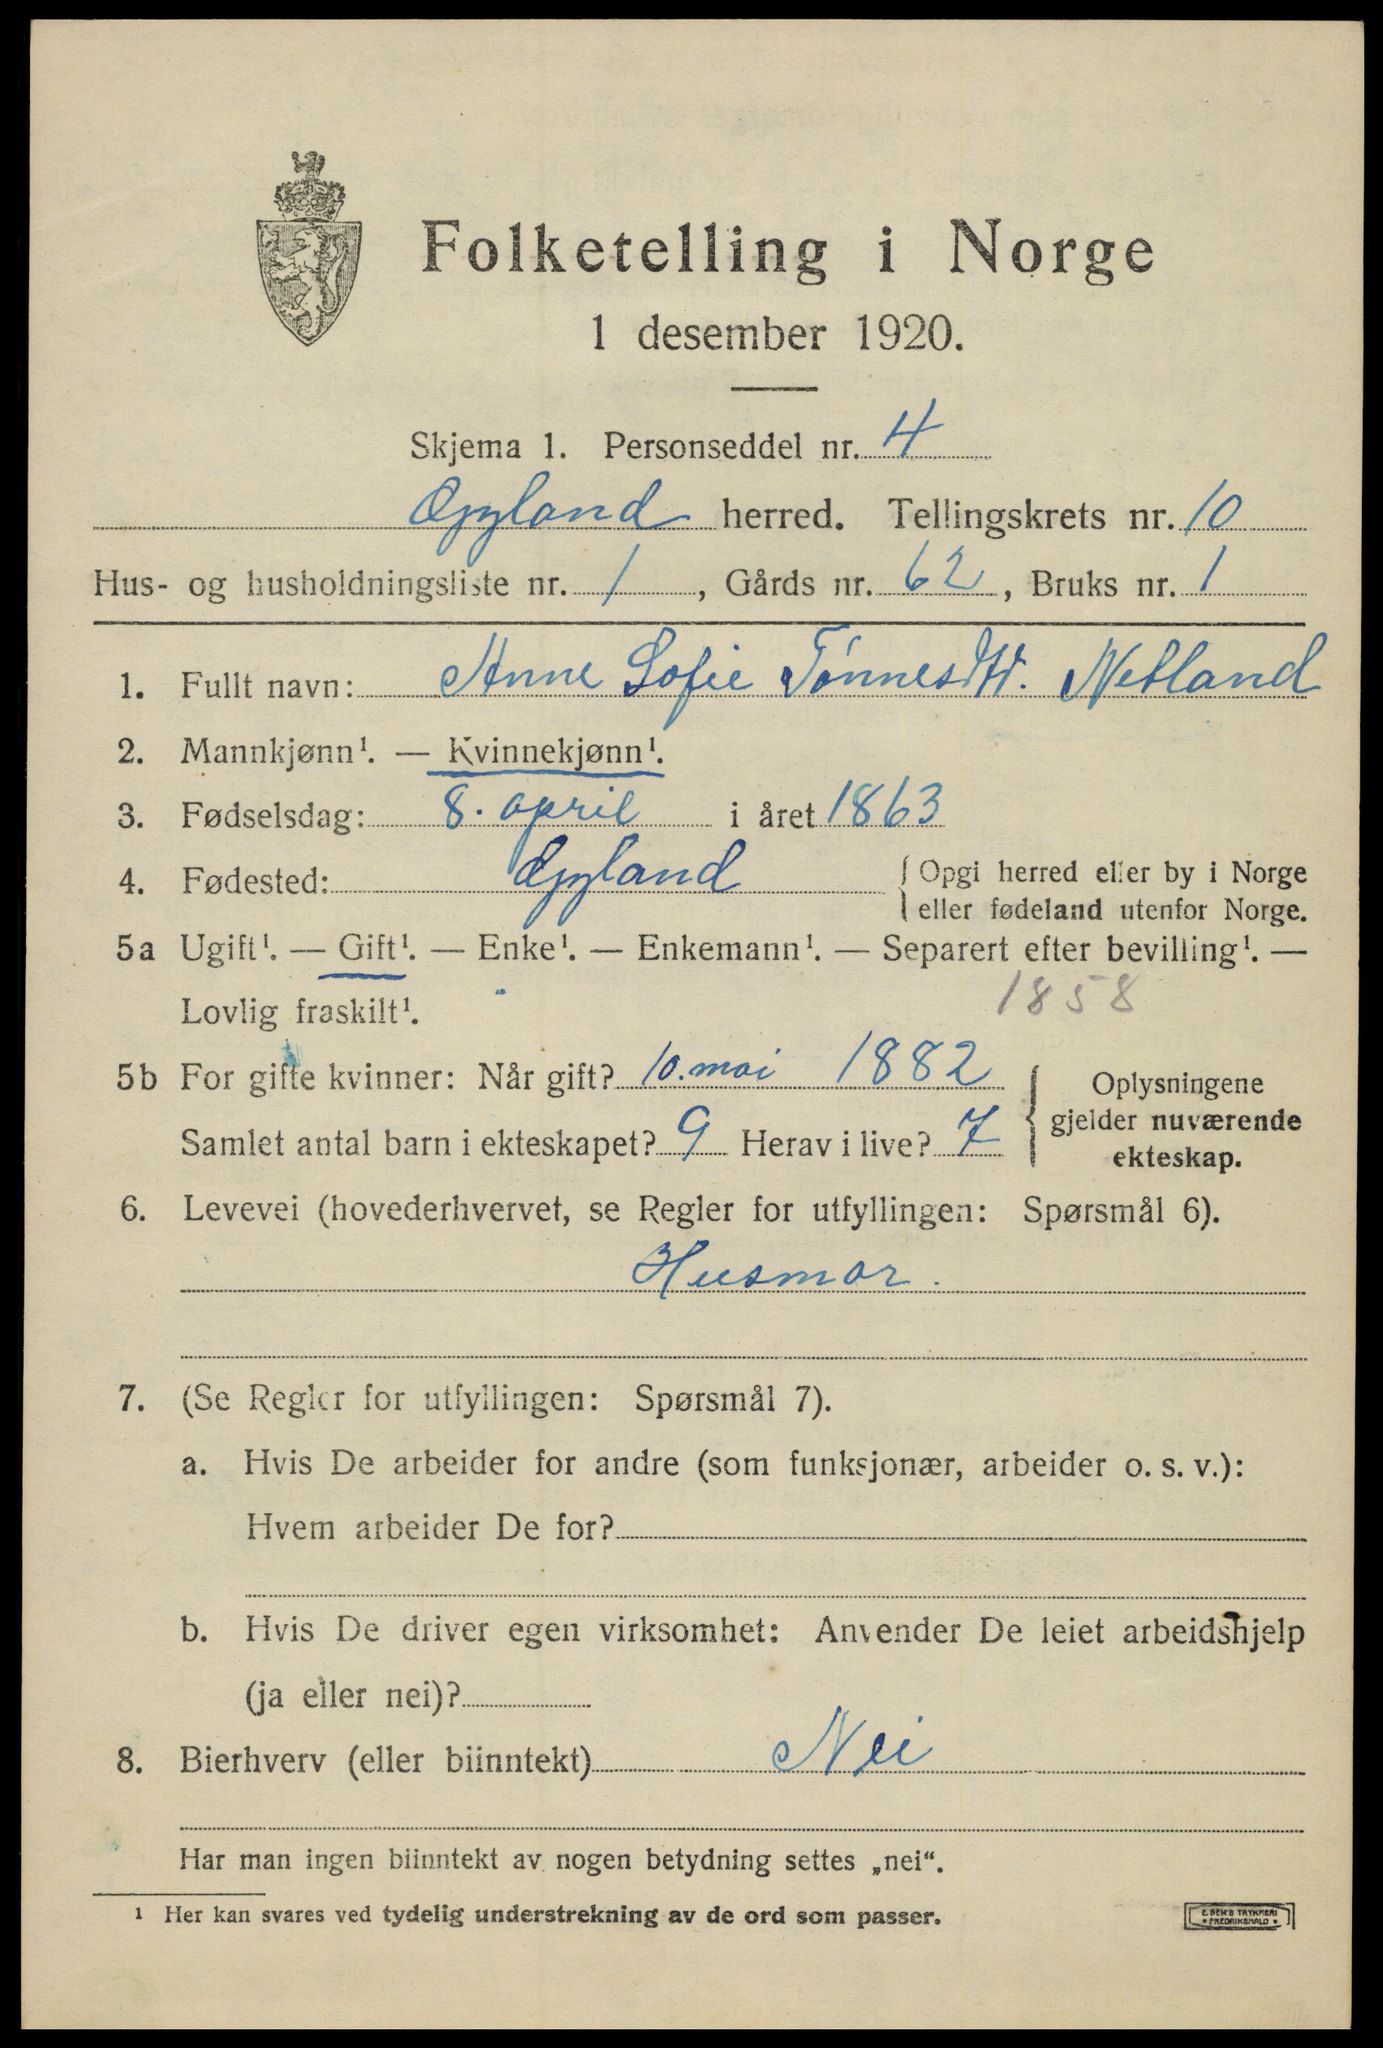 Folketelling i Norge
1 desember 1920.
Skjema 1. Personseddel nr. 4
Gyland herred. Tellingskrets nr. 10
Hus- og husholdningsliste nr. 1, Gårds nr. 62, Bruks nr. 1
1. Fullt navn: Anne Sofie Tønnesdtr. Netland
2. Mannkjønn¹. — Kvinnekjønn¹.
3. Fødselsdag: 8. april i året 1863
4. Fødested: Gyland { Opgi herred eller by i Norge
eller fødeland utenfor Norge.
5a Ugift¹. — Gift¹. — Enke¹. — Enkemann¹. — Separert efter bevilling¹. —
Lovlig fraskilt¹. 1858
5b For gifte kvinner: Når gift? 10. mai 1882
Samlet antal barn i ekteskapet? 9 Herav i live? 7
{ Oplysningene
gjelder nuværende
ekteskap.
6. Levevei (hovederhvervet, se Regler for utfyllingen: Spørsmål 6).
Husmor.
7. (Se Regler for utfyllingen: Spørsmål 7).
a. Hvis De arbeider for andre (som funksjonær, arbeider o. s. v.):
Hvem arbeider De for?
b. Hvis De driver egen virksomhet: Anvender De leiet arbeidshjelp
(ja eller nei)?
8. Bierhverv (eller biinntekt) Nei
Har man ingen biinntekt av nogen betydning settes „nei“.
¹ Her kan svares ved tydelig understrekning av de ord som passer.
E. SEM'S TRYKKERI
• FREDRIKSHALD •